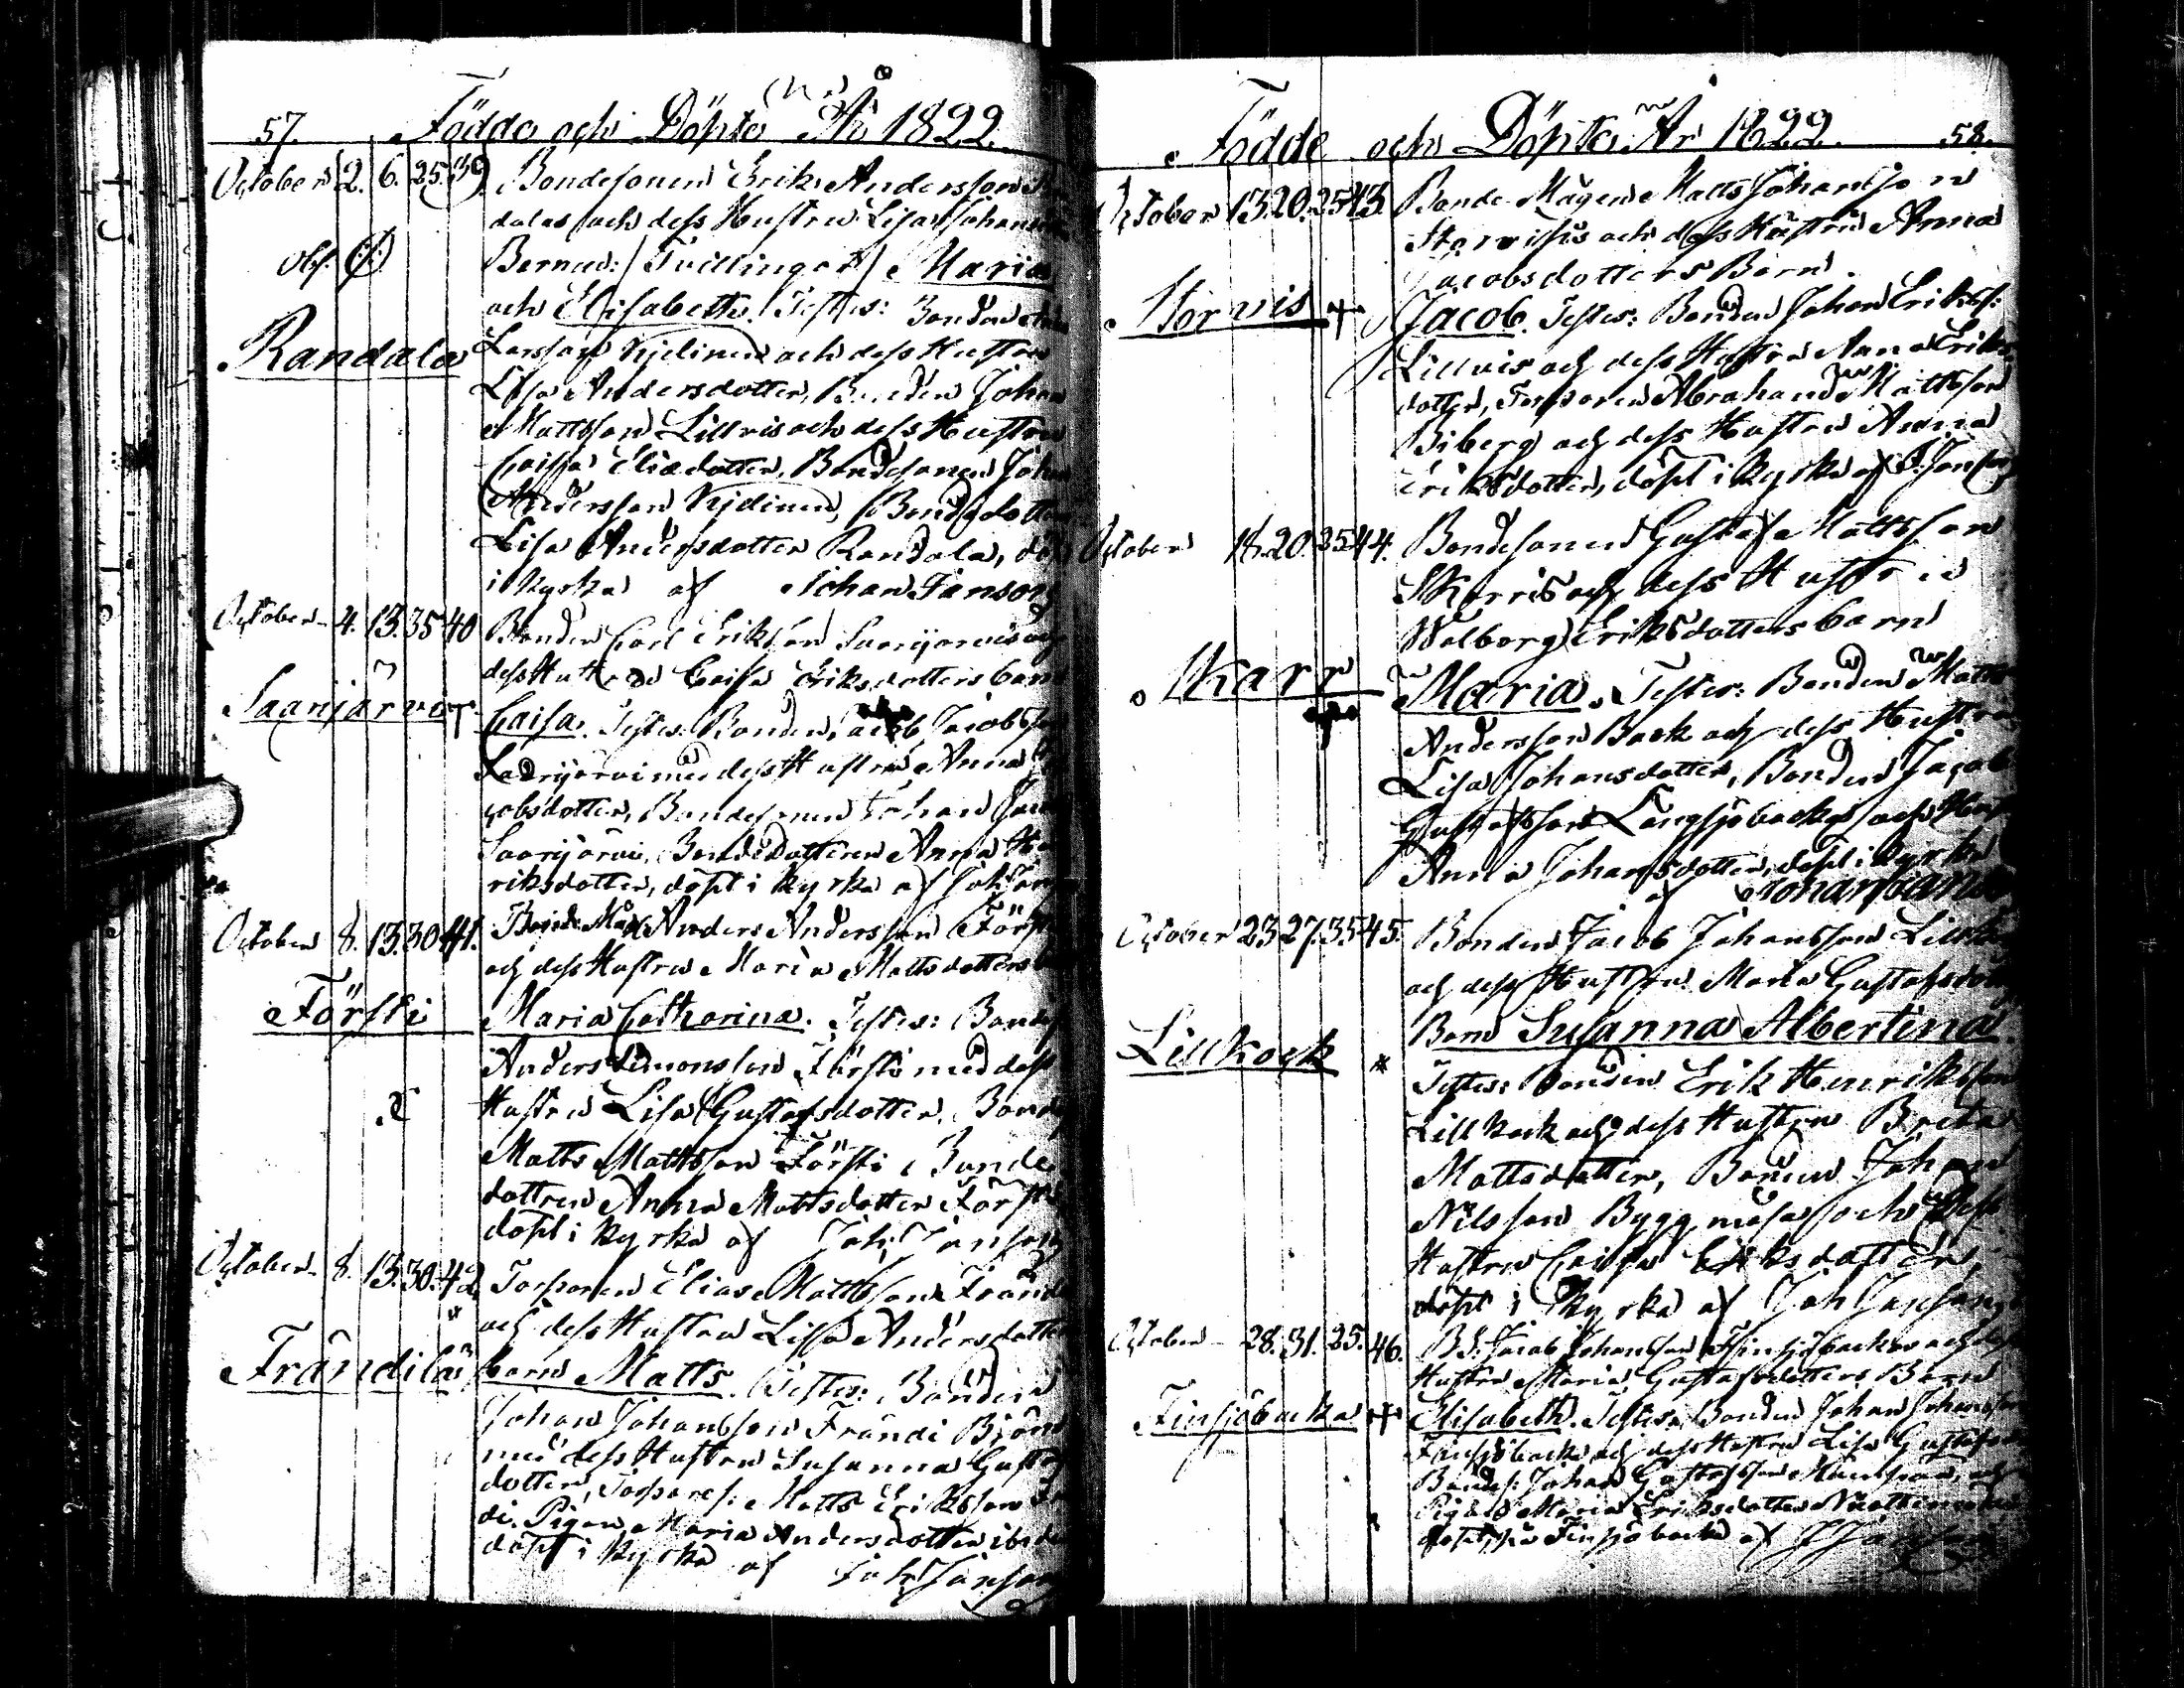 57. Födde och Döpte År 1822.
October 2. 6. 25. 39. Bondesonen Erik Andersson
dala och dess Hustru Lisa Johans
obs. Bernen: Tvillingar Maria
och Elisabeth. Testes: Bonden
Randala Larsson Kjelinen och dess Hustru
Lisa Andersdotter, Bonden Johan
Mattsson Lillvis och dess Hustru
Caisa Eliædotter, Bondesonen Johan
Andersson Kjelinen, Bondedotter
Lisa Andersdotter Randala, döpt
i kyrka af Johan Janson
October 4. 13. 35 40 Bonden Carl Eriksson Saarijärvi och
dess Hustru Caisa Eriksdotters barn
Saarijärvi Caisa. Testes: Bonden Jacob Jacobsson
Saarijärvi med dess Hustru Anna
cobsdotter, Bondesonen Johan
Saarijärvi, Bondedotteren Anna He
riksdotter, döpt i kyrka af Joh Janson
October 8. 13. 30 41. Bonde Måg Anders Andersson Försti
och dess Hustru Maria Mattsdotters
Försti Maria Catharina. Testes: Bonden
Anders Simonsson Försti med dess
Hustru Lisa Gustafsdotter. Bonden
Matts Mattsson Försti, Bonde
dottren Anna Mattsdotter Försti
döpt i kyrka af Joh: Janson
October 8. 13. 30. 42 Torparen Elias Mattsson Frändi
och dess Hustru Lisa Andersdotter
Frändilä barn Matts. Testes: Bonden
Johan Johansson Frändi Björn
med dess Hustru Susanna Gustaf
dotter, Torpares: Matts Eriksson Frän
di. Pigan Maria Andersdotter ibidem
döpt i kyrka af Joh Janson
Födde och Döpte År 1822. 58.
October 13. 20. 25 43. Bonde Mågen Matts Johansson
Storvis och dess Hustru Anna
Jacobsdotters Barn.
Storvis + Jacob. Testes: Bonden Johan Eriks:
Lillvis och dess Hustru Anna Eriks
dotter, Torparen Abraham Mattsson
Biberg och dess Hustru Anna
Eriksdotter, döpt i kyrka af J: Janson
October 18. 20. 35 44. Bondesonen Gustaf Mattsson
Skarris och dess Hustru
Walborg Eriksdotters barn
Skarr Maria. Testes: Bonden Matts
Andersson Back och dess Hustru
Lisa Johansdotter, Bonden Jacob
Gustafsson Långsjöbacka och
Anna Johansdotter, döpt i kyrka
af Johan Janson
October 23 27. 35 45. Bonden Jacob Johansson Lillkock
och dess Hustru Maria Gustafsdotters
Barn Susanna Albertina.
Lillkock * Testes: Bonden Erik Henriksson
Lillkock och dess Hustru Breta
Mattsdotter, Bonden Johan
Nilsson Byggmäsa och dess
Hustru Caisa Eriksdotter,
döpt i kyrka af Joh Janson
October 28. 31. 25. 46. B.S: Jacob Johansson Finsjöbacka och dess
Hustru Maria Gustafsdotters Barn
Finsjöbacka + Elisabeth. Testes: Bonden Johan Johansson
Finsjöbacka och dess Hustru Lisa Gustafsdotter
Bondes: Johan Gustafsson och
Pigan Maria Eriksdotter
döpt på Finsjöbacka af J Janson